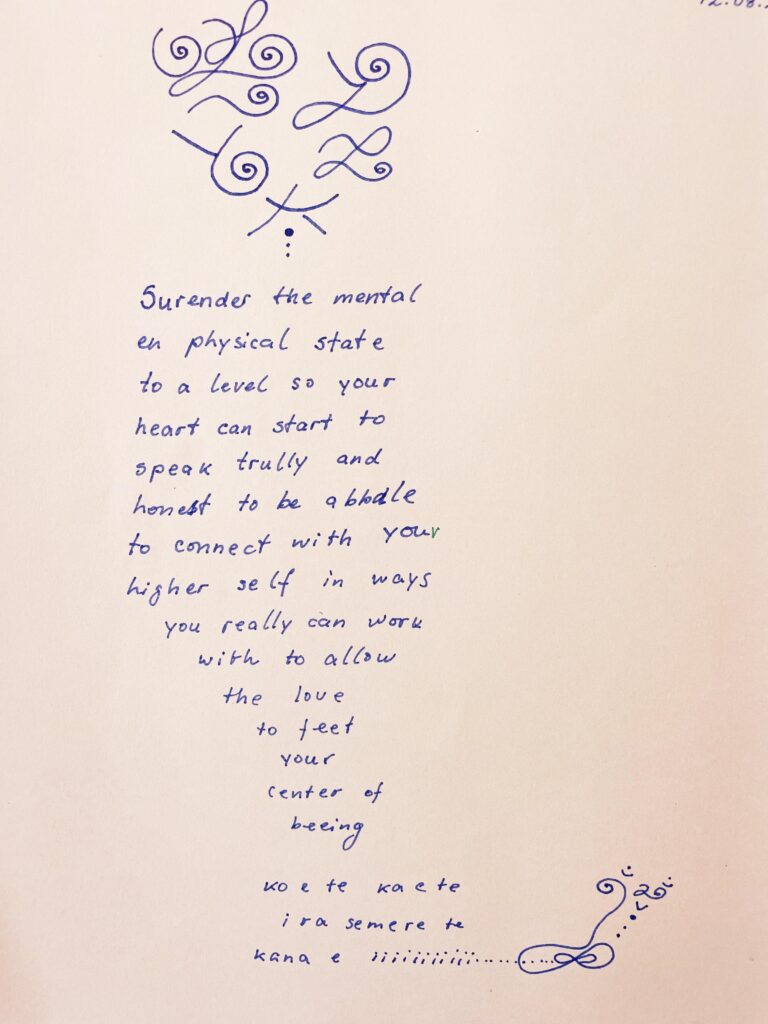 12.08.
Surender the mental
en physical state
to a level so your
heart can start to
speak trully and
honest to be
to connect with your
higher self in ways
you really can work
with to allow
the love
to feet
your
center of
beeing
ko e te kaete
ira semere te
kana e iiiiiiiiiiii